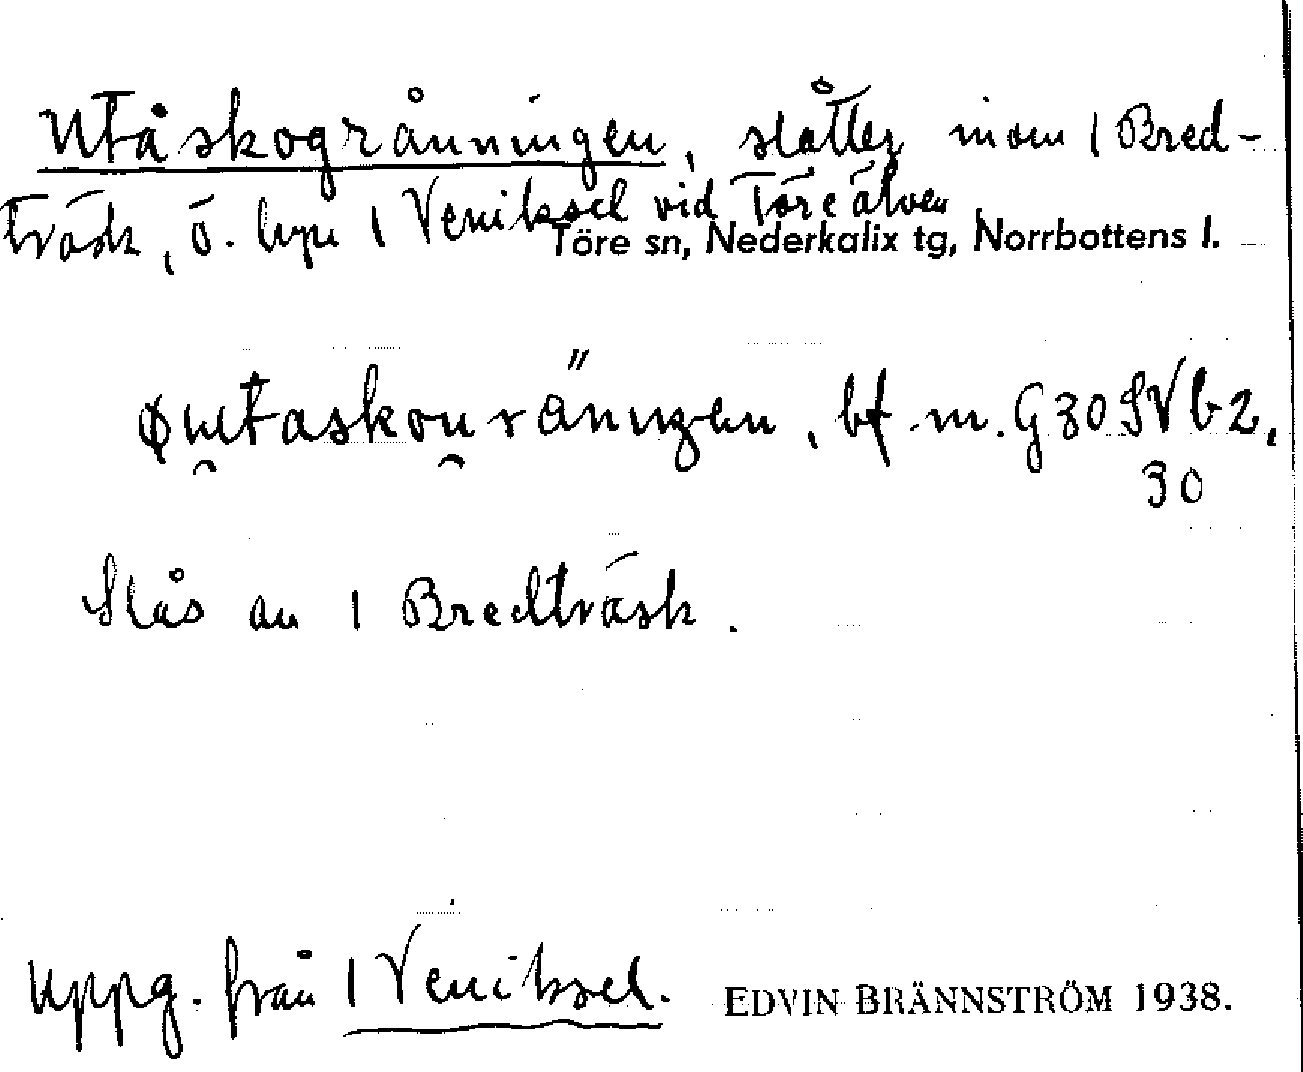 Utåskogrånningen, slåtter inom 1 Bred-
träsk, ö. byn 1 Veniksel vid Töreälven
Töre sn, Nederkalix tg, Norrbottens l.
bf. m. G30 SV b2,
30
Slås av 1 Bredträsk.
Uppg. från 1 Veniksel. EDVIN BRÄNNSTRÖM 1938.